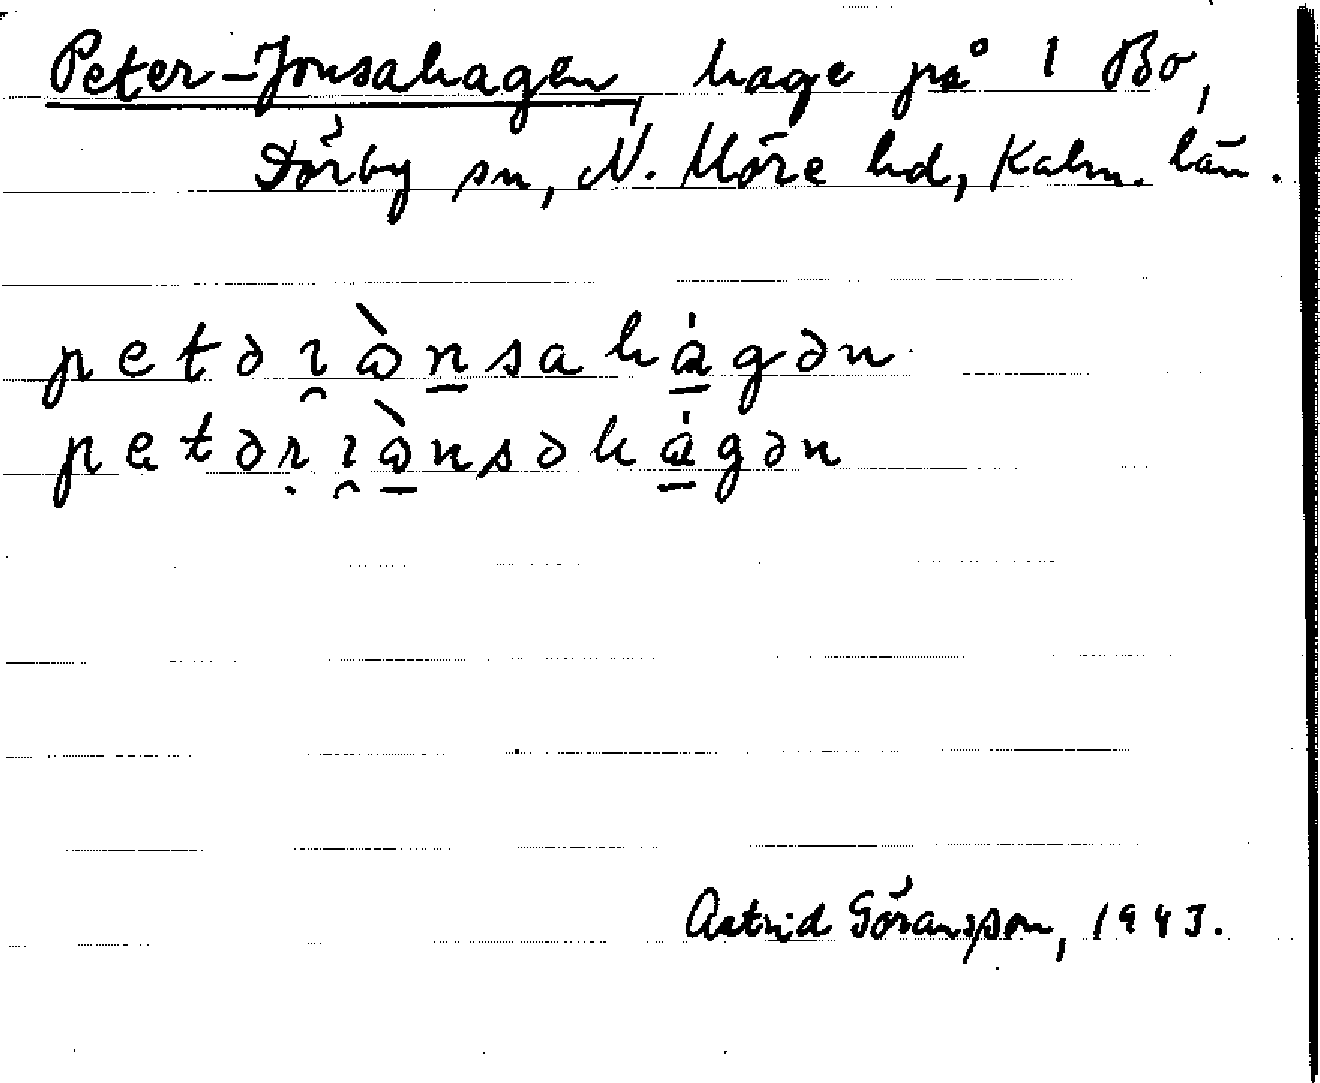 Peter-Jonsahagen, hage på 1 Bo,
Dörby sn, N. Möre hd, Kalm. län.
petəɿ̯ɷ̀n̲sahá̲gən
petərɿ̯ɷ̲̀nsəhá̲gən
Astrid Göransson, 1943.